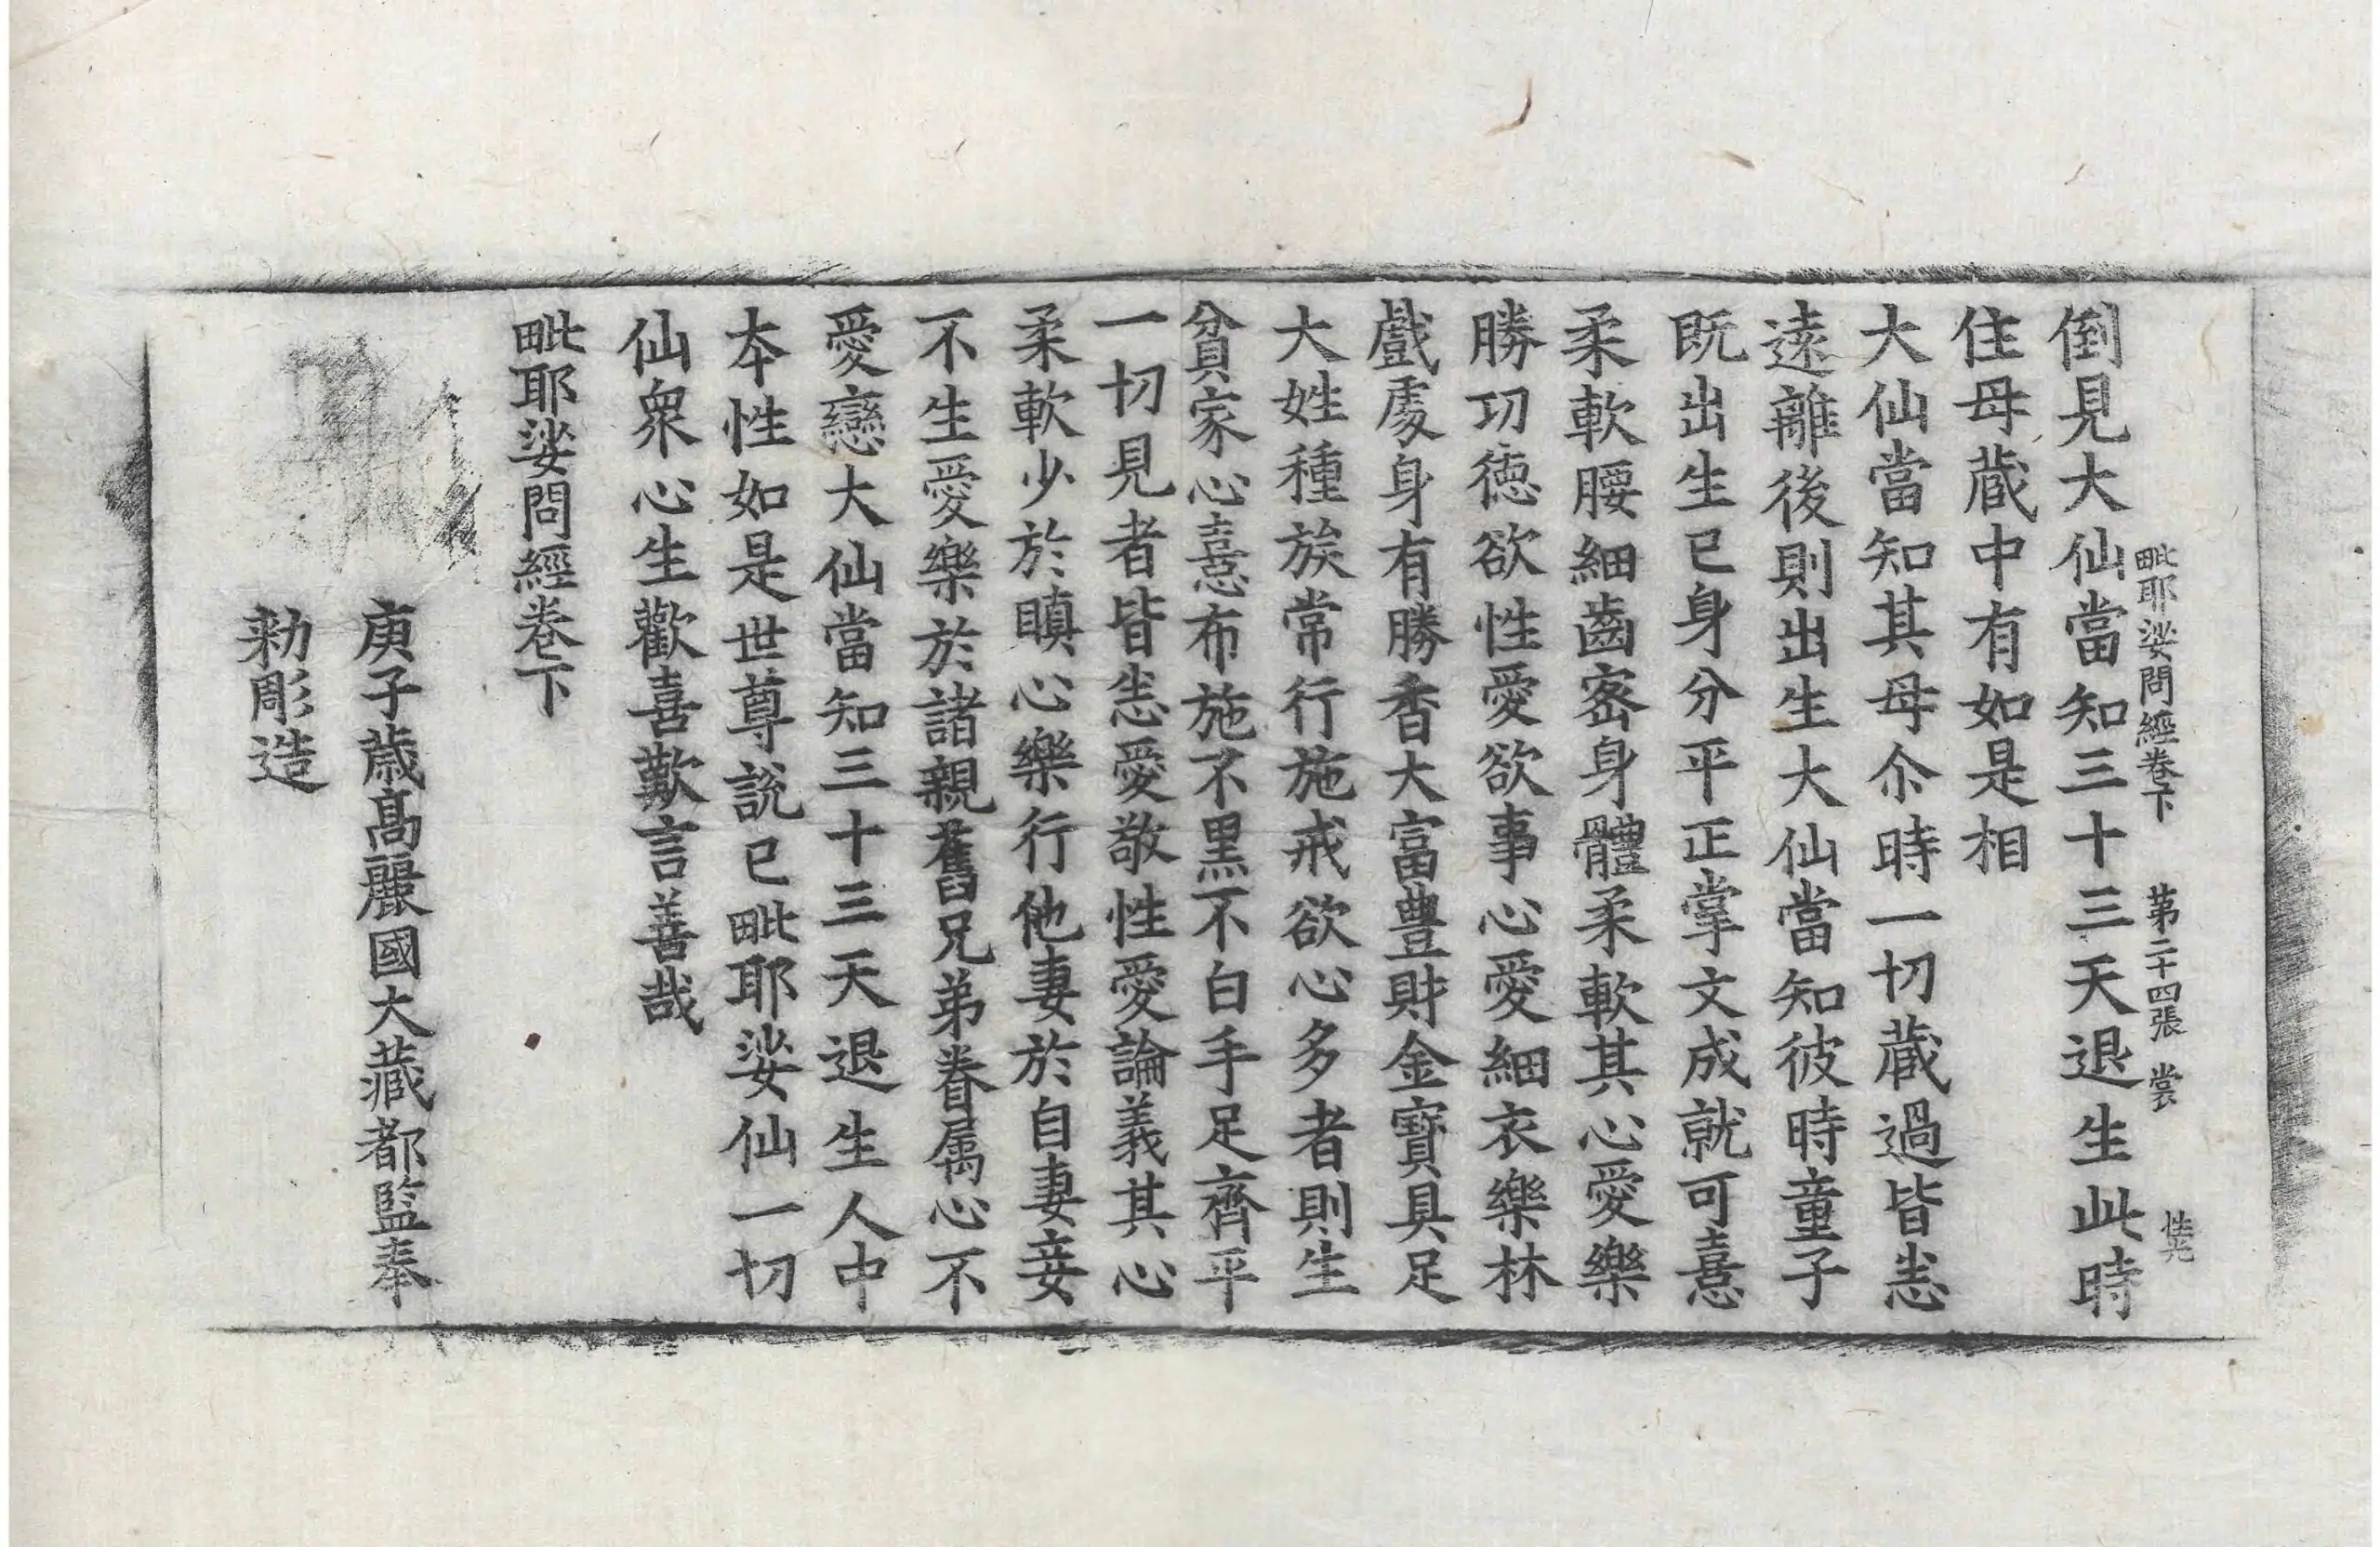 毗耶娑問經卷下 第二十四張 裳
倒見大仙當知三十三天退生此時
住母蔵中有如是相
大仙當知其母尒時一切蔵過皆悉
遠離後則出生大仙當知彼時童子
既出生已身分平正掌文成就可憙
柔軟腰細齒密身體柔軟其心愛樂
勝㓛德欲性愛欲事心愛細衣樂林
戲處身有勝香大富豊財金寶具足
大姓種族常行施戒欲心多者則生
貧家心憙布施不黒不白手足齊平
一切見者皆悉愛敬性愛論義其心
柔軟少於瞋心樂行他妻於自妻妾
不生愛樂於諸親舊兄弟眷属心不
愛戀大仙當知三十三天退生人中
夲性如是世尊說已毗耶娑仙一切
仙衆心生歡喜歎言善哉
毗耶娑問經卷下
庚子歳高麗國大藏都監奉
勑彫造